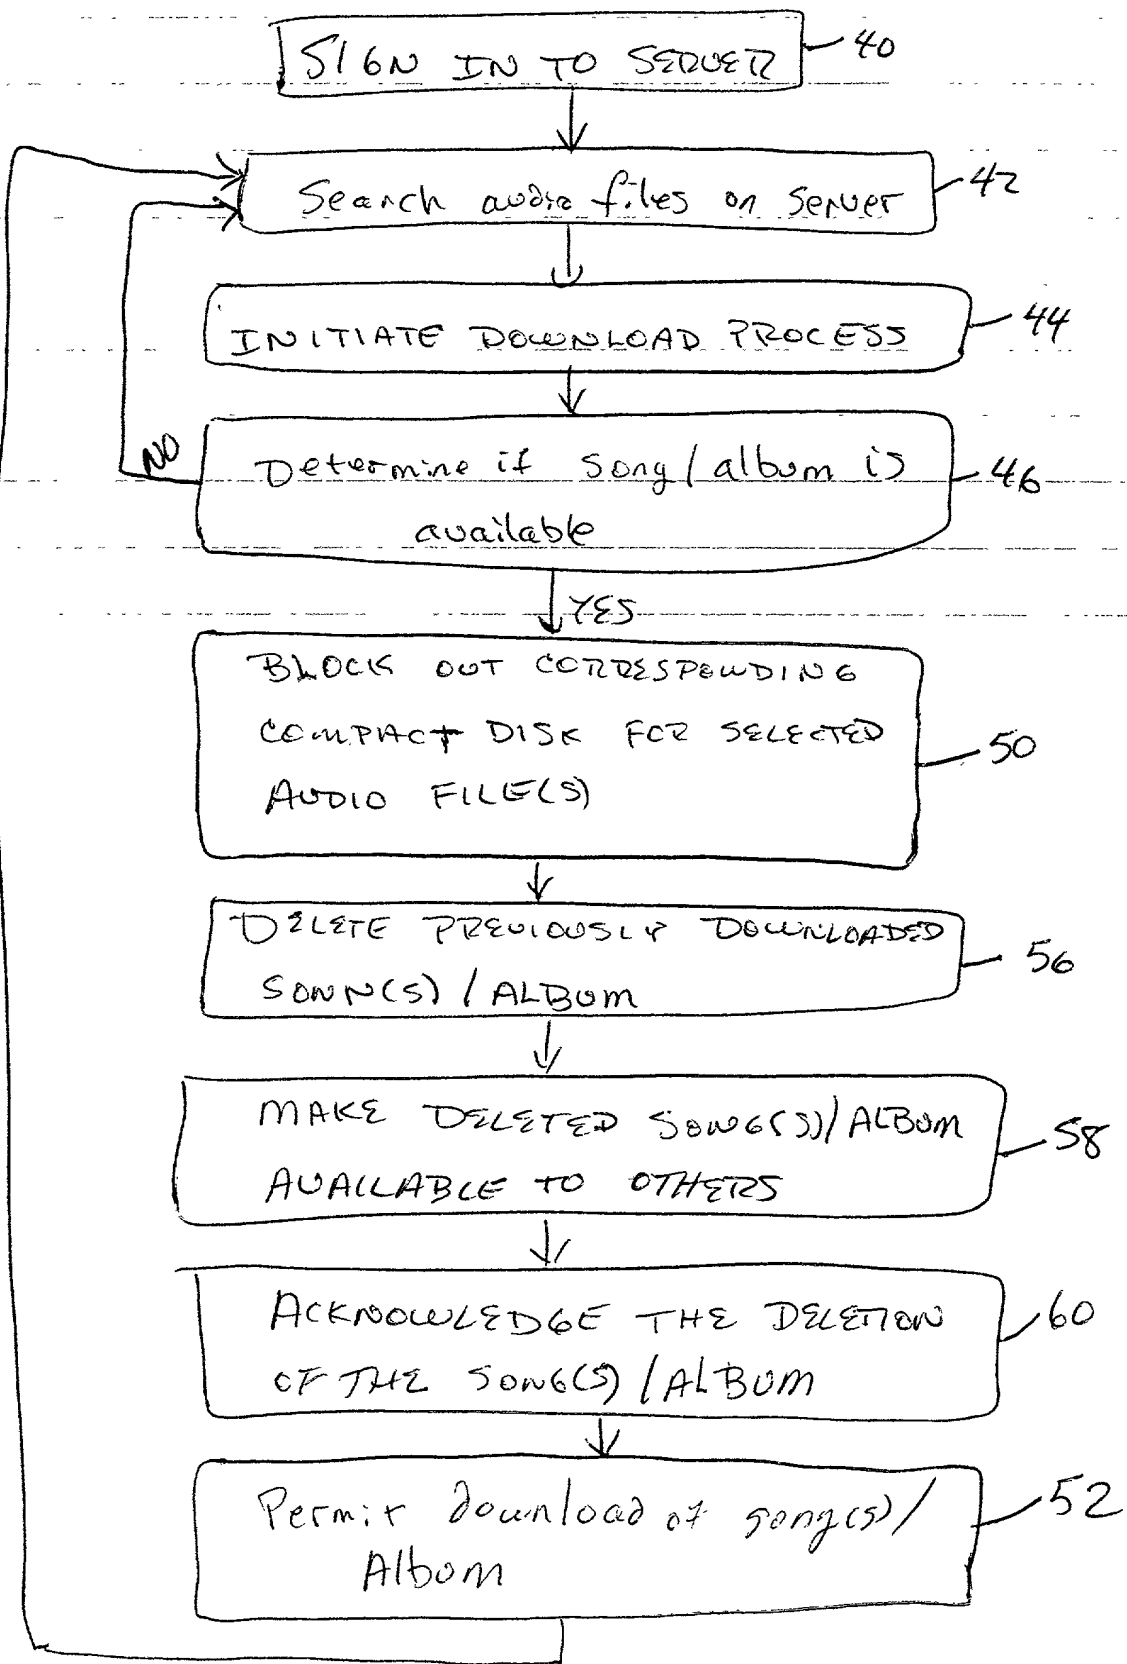 SIGN IN TO SERVER
40
Search audio files on server
42
INITIATE DOWNLOAD PROCESS
44
NO
Determine if song/album is
available
46
YES
BLOCK OUT CORRESPONDING
COMPACT DISK FOR SELECTED
AUDIO FILE(S)
50
DELETE PREVIOUSLY DOWNLOADED
SONN(S)/ALBUM
56
MAKE DELETED SONG(S)/ALBUM
AVAILABLE TO OTHERS
58
ACKNOWLEDGE THE DELETION
OF THE SONG(S)/ALBUM
60
Permit download of song(s)/
Album
52